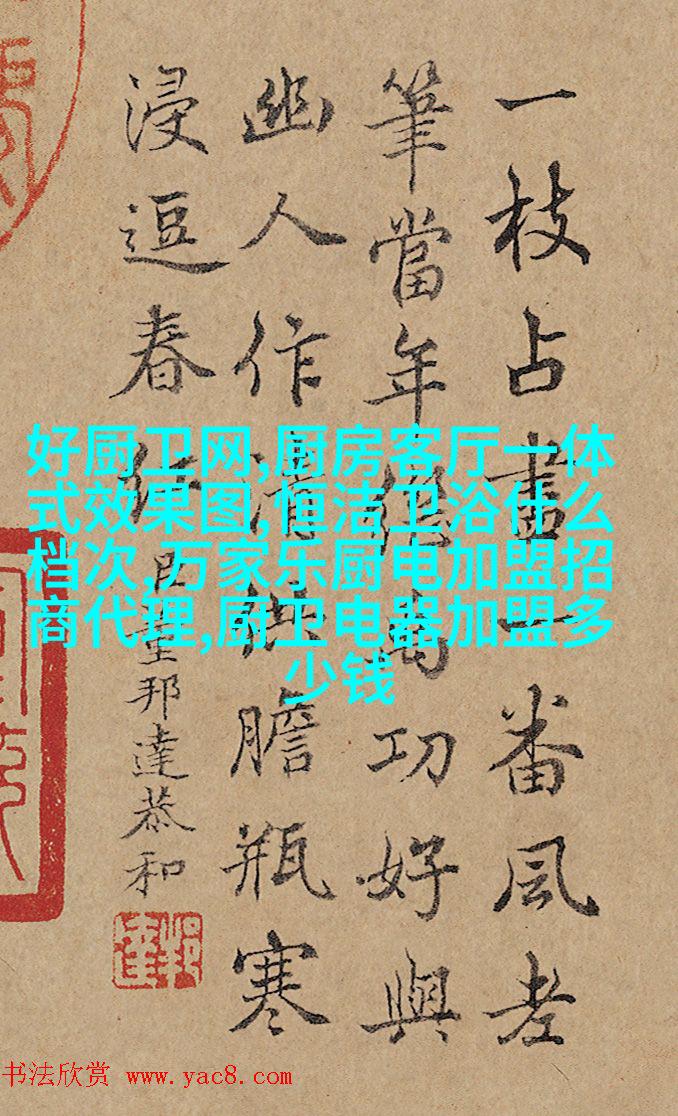 一枝占盡一番風老
筆當年功好與
幽人作清供膽瓶寒
浸逗春紅
臣董邦達恭和
好厨卫网,厨房客厅一体
式效果图,恒洁卫浴什么
档次,万家乐厨电加盟招
商代理,厨卫电器加盟多
少钱
书法欣赏 www.yac8.com